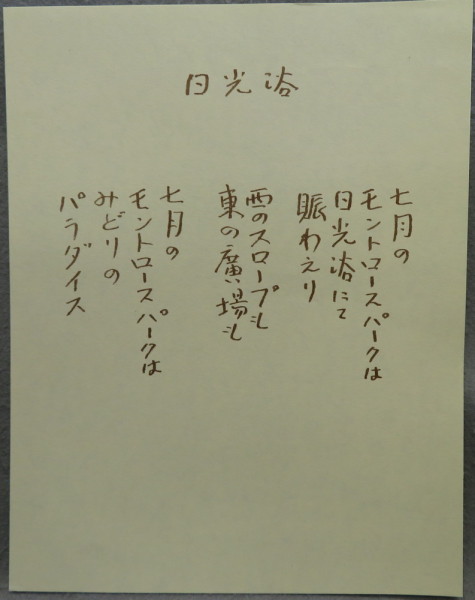 日光浴
七月の
モントロースパークは
日光浴にて
賑わえり
西のスロープも
東の廣場も
七月の
モントロースパークは
みどりの
パラダイス